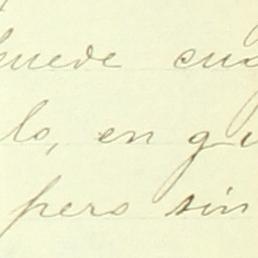 puede cua
lo, en qu
pero sin